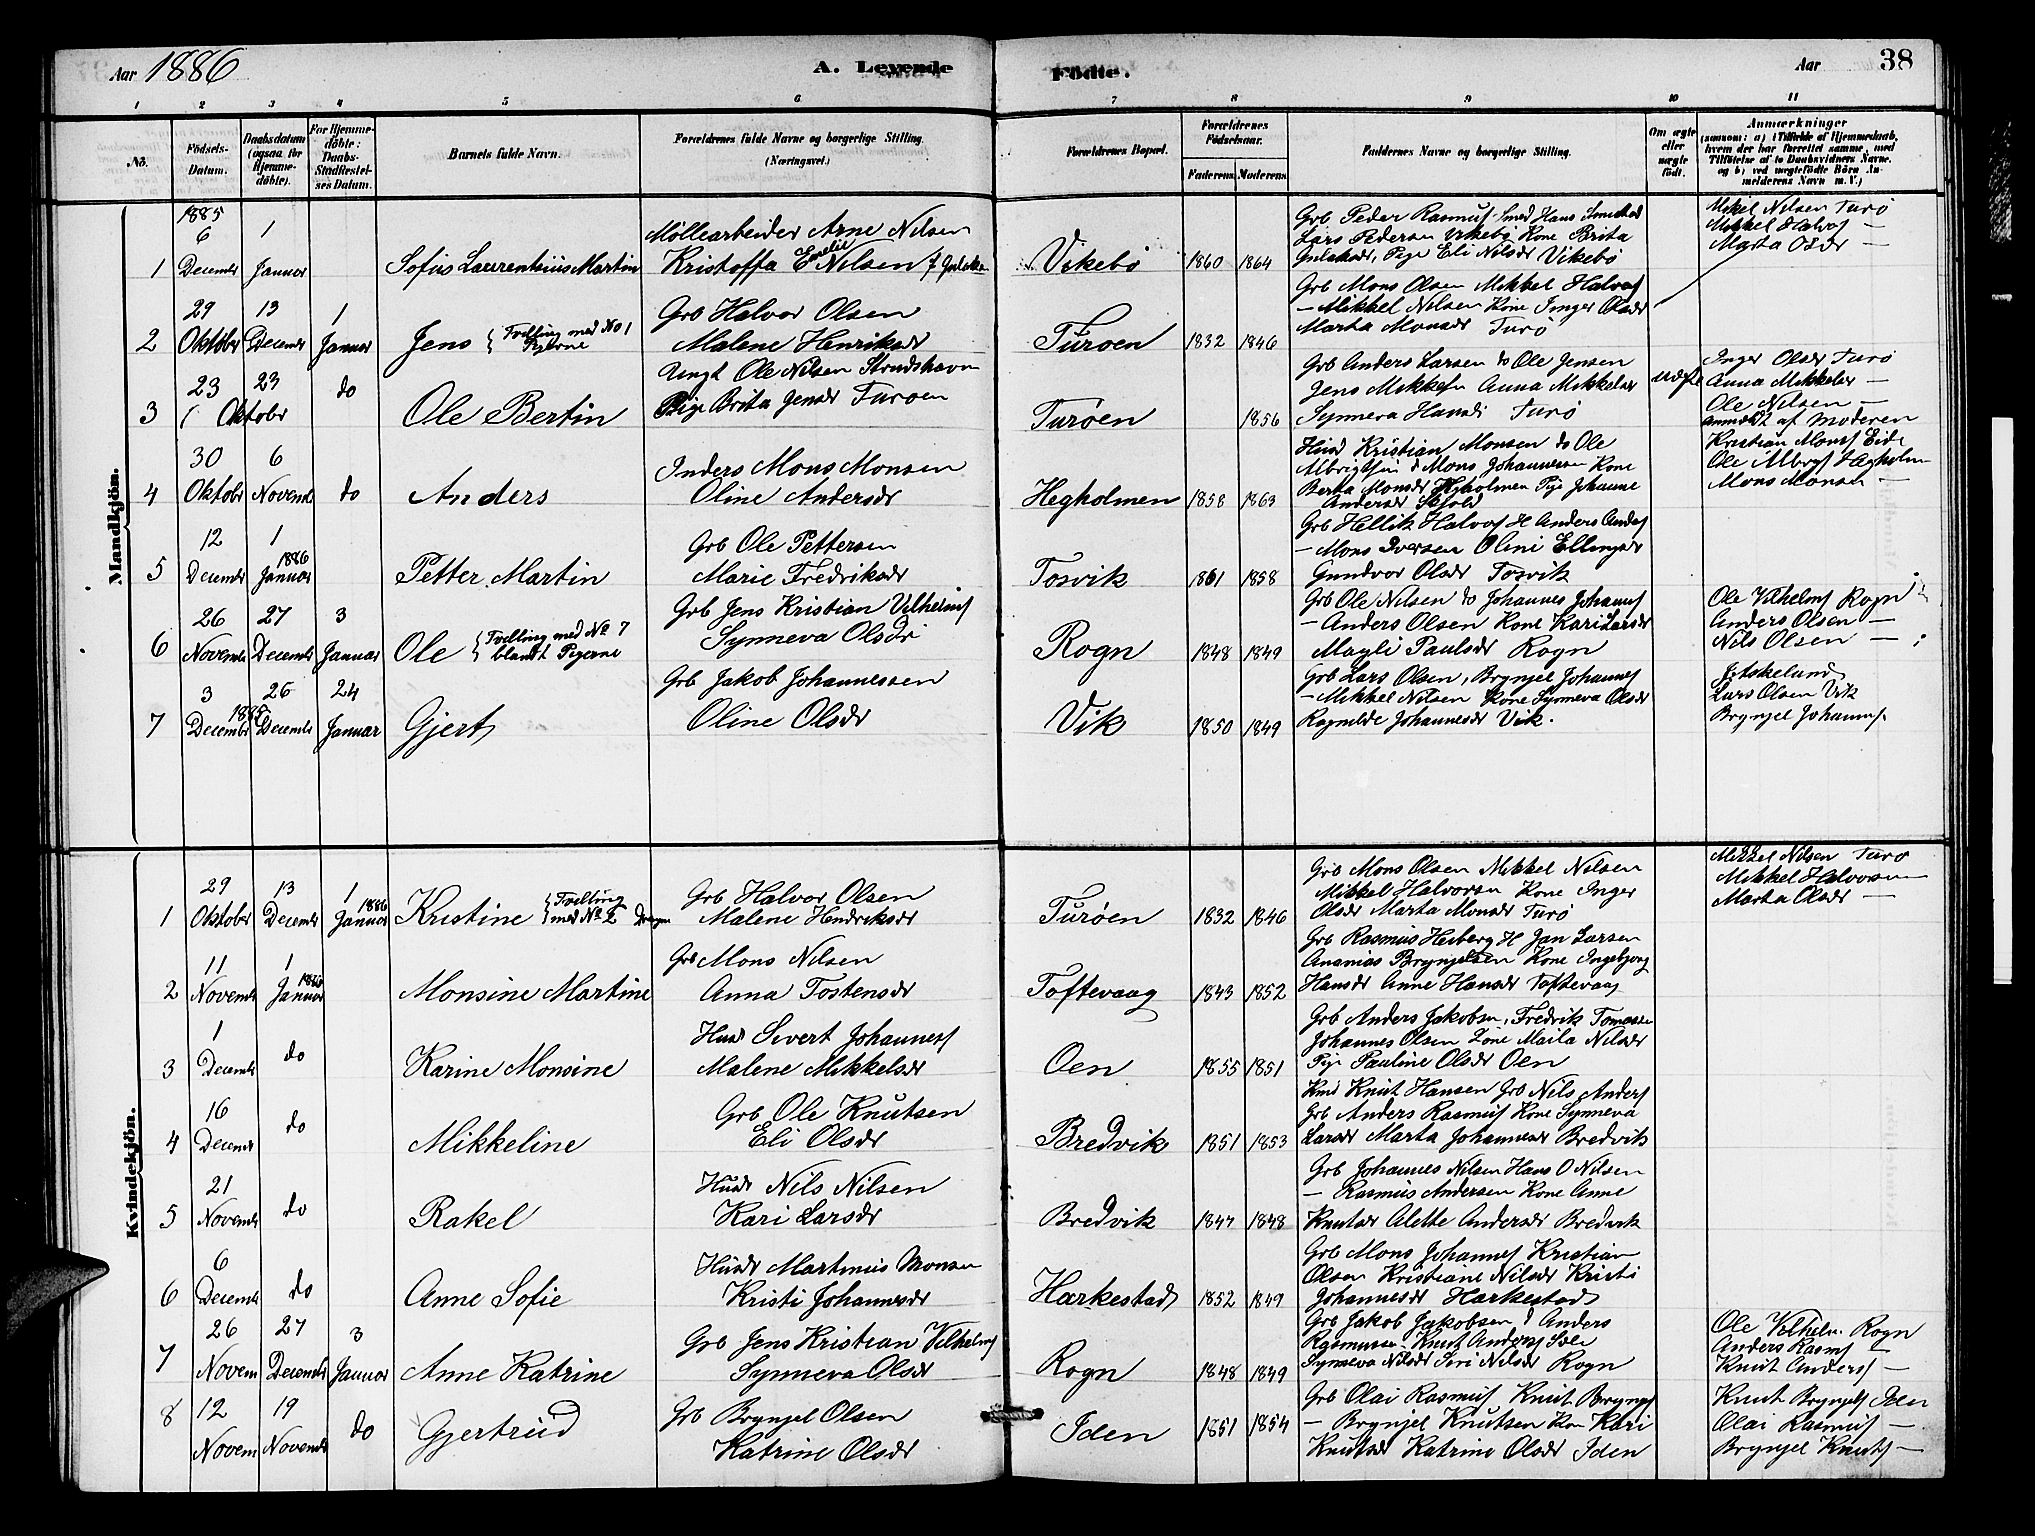 Aar 1886
A. Levende
Födte.
Aar
38
1 2 3 4 5 6 7 8 9 10 11
No.
Födsels-Datum.
Daabsdatum (ogsaa for Hjemmedöbte).
For Hjemmedöbte: Daabs-Stadfæstelses Datum.
Barnets fulde Navn.
Forældrenes fulde Navne og borgerlige Stilling. (Næringsvei.)
Forældrenes Bopæl.
Forældrenes Födselsaar.
Faderens. Moderens.
Faddernes Navne og borgerlige Stilling.
Om ægte eller uægte födt.
Anmærkninger
Mandkjön.
1885
6 1
Møllearbeider Arne Nilsen
Grb Peder Rasmusf. Smed Hans
Mikel Nilsen Turø
Lars Pedersen Vikebø Kone Brita
Mikkel Halvorf —
1 Decembr Januar Sofus Laurentsius Martin Kristoffa Emelie Nilsen
Vikebø 1860 1864
Pige Eli Nilsdr Vikebø
Marta Olsdr —
29 13 1
Grb Halvor Olsen
Grb Mons Olsen Mikkel Halvorf
— Mikkel Nilsen Kone Inger Olsdr
2 Oktober Decembr Januar Jens { Tvilling med No 1 Pigerne
Malene Henriksdr
Turoen 1832 1846
Marta Monsdr Turø
23 23 do
Ungk Ole Nilsen Strudshavn
Grb Anders Larsen do Ole Jensen
Inger Olsdr Turø
Jens Mikkelsen Anna Mikkelsdr
uægte
Anna Mikkelsdr —
3 Oktobr Ole Bertin
Pige Brita Jensdr Turoen
Turøen 1856
Synneva Hansdr Turø
Ole Nilsen —
anmeldt af Moderen
30 6
Inders Mons Monsen
Husd Kristian Monsen do Ole
Kristian Monsf Eide
Mons Johannessen Kone
4 Oktobr Novembr do Anders
Oline Andersdr
Hegholmen 1858 1863
Berta Monsdr Hegholmen Pige Johanne
Mons Monsen —
Andersdr
12 1
Grb Ole Pettersen
Grb Hellik Halvorf H Anders Andersf
1886
— Mons Iversen Oline Ellingsdr
5 Decembr Januar Petter Martin
Marie Fredriksdr
Tosvik 1861 1858
Gundvor Olsdr Tosvik
26 27 3
Grb Jens Kristian Vilhelmsf
Grb Ole Nilsen do Johannes Johannesf
Ole Vilhelmsf Rogn
— Anders Olsen Kone Kari Larsdr
Anders Olsen —
6 Novembr Decembr Januar Ole { Tvilling med No 7 blandt Pigerne
Synneva Olsdr
Rogn 1848 1849
Magli Paulsdr Rogn
Nils Olsen —
3 26 24
Grb Jakob Johannessen
Grb Lars Olsen, Brynjel Johannesf
J. Askeland
1885
— Mikkel Nilsen Kone Synneva Olsdr
Lars Olsen Vik
7 Decembr Decembr Januar Gjert
Oline Olsdr
Vik 1850 1849
Ragnilde Johannesdr Vik.
Brynjel Johannesf.
Kvindekjön.
29 13 1
Grb Halvor Olsen
Grb Mons Olsen Mikkel Nilsen
Mikkel Nilsen Turø
1886
Mikkel Halvorsen Kone Inger
Mikkel Halvorsen
1 Oktober Decembr Januar Kristine { Tvilling med No 2
Malene Hendriksdr
Turøen 1832 1846
Olsdr Marta Monsdr Turø
Marta Olsdr —
11 1
Grb Mons Nilsen
Grb Rasmus Herberg H Jan Larsen
1886
Ananias Brynjelsen Kone Ingebjorg
2 Novembr Januar Monsine Martine
Anna Tostensdr
Toftevaag 1843 1852
Hansdr Anne Hansdr Toftevaag
1 do
Husd Sivert Johannesf
Grb Anders Jakobsen, Fredrik Tomassen
Johannes Olsen Kone Maila Nilsdr
3 Decembr Karine Monsine
Malene Mikkelsdr
Oen 1855 1851
Pige Pauline Olsdr Oen
16 do
Grb Ole Knutsen
Knut Hansen Grb Nils Andersf
Grb Anders Rasmusf Kone Synneva
4 Decembr Mikkeline
Eli Olsdr
Bredvik 1851 1853
Larsdr Marta Johannesdr Bredvik
21 do
Husd Nils Nilsen
Grb Johannes Nilsen Hans O Nilsen
— Rasmus Andersen Kone Anne
5 Novembr Rakel
Kari Larsdr
Bredvik 1847 1848
Knutsdr Alette Andersdr Bredvik
6 do
Husd Martinus Monsen
Grb Mons Johannesf Kristian
Olsen Kristiane Nilsdr Kristi
6 Decembr Anne Sofie
Kristi Johannesdr
Harkestad 1852 1849
Johannesdr Harkestad
26 27 3
Grb Jens Kristian Vilhelmsf
Grb Jakob Jakobsen, d Anders
Ole Vilhelm. Rogn
Rasmussen Knut Andersf
Anders Rasmf —
7 Novem Decembr Januar Anne Katrine
Synneva Olsdr
Rogn 1848 1849
Synneva Nilsdr Siri Nilsdr Rogn
Knut Andersf —
8 12 19
Grb Brynjel Olsen
Grb Olai Rasmusf Knut Brynjelf
Knut Brynjelf Iden
Novem Novembr do Gjertrud
Iden 1851 1854
— Brynjel Knutsen Kone Kari
Olai Rasmusf —
Katrine Olsdr
Knutsdr Katrine Olsdr Iden
Brynjel Knutsf —